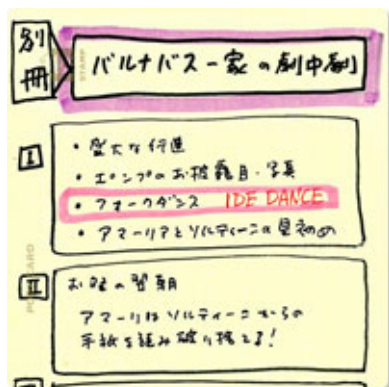 別冊
バルナバス一家の劇中劇
I
・盛大な行進
・ポンプのお披露目・写真
・フォークダンス IDE DANCE
・アマーリアとソルティーニの見初め
II
お祭の翌朝
アマーリアはソルティーニからの
手紙を読み破り捨てる!
STAMP
POSTCARD